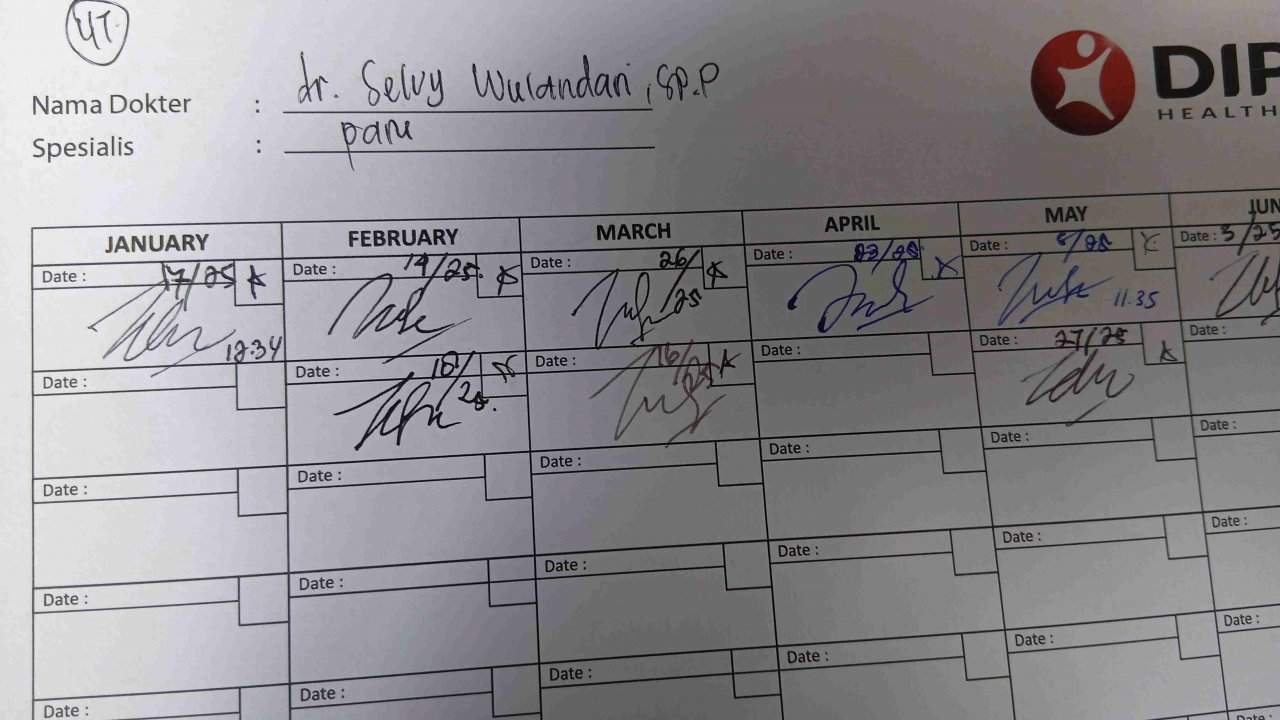 UT
Nama Dokter : dr. Selvy Wulandari, Sp.P
Spesialis : paru
DIP
HEALTH
JANUARY FEBRUARY MARCH APRIL MAY JUN
Date : 17/25 Date : 14/25 Date : 26/25 Date : 23/25 Date : 8/25 Date : 3/25
12.34 11.35
Date : Date : 18/25. Date : 16/25 Date : Date : 27/25 Date :
Date : Date : Date : Date : Date : Date :
Date : Date : Date : Date : Date : Date :
Date : Date : Date : Date : Date : Date :
Date :